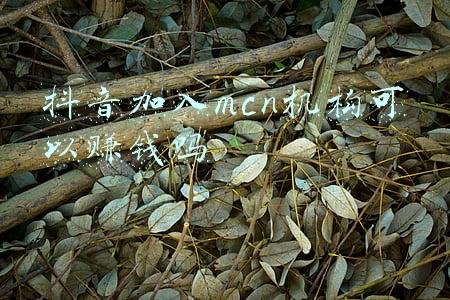 抖音加入mcn机构可
以赚钱吗